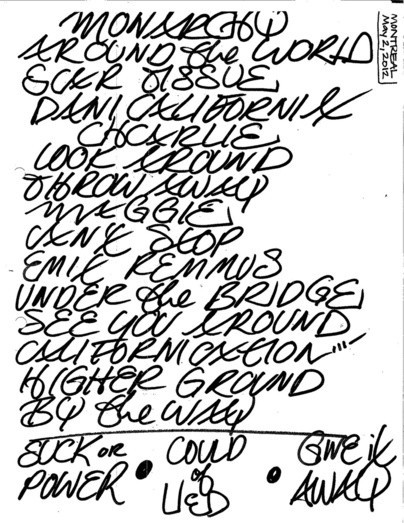 MONARCHY
MONTREAL
May 2, 2012
AROUND the WORLD
SCAR TISSUE
DANI CALIFORNIA
CHARLIE
LOOK AROUND
THROW AWAY
MAGGIE
CANT STOP
EMIT REMMUS
UNDER the BRIDGE
SEE YOU AROUND
CALIFORNICATION
HIGHER GROUND
BY the WAY
SUCK OR POWER • COULD of LIED • GIVE it AWAY